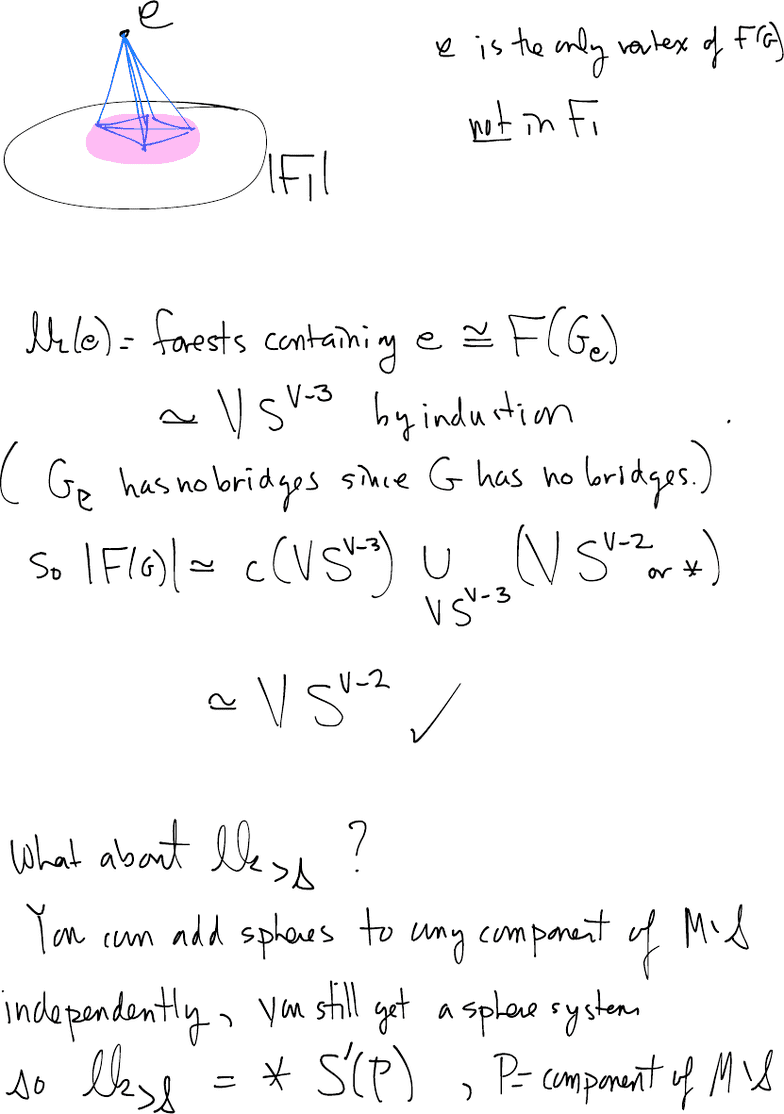 e
e is the only vertex of F(G)
not in F₁
|F₁|
lk(e) = forests containing e ≅ F(G_e)
≃ ∨ S^{V-3} by induction
( G_e has no bridges since G has no bridges.)
So |F(G)| ≃ c(∨S^{V-3}) ∪_{∨S^{V-3}} (∨ S^{V-2} or *)
≃ ∨ S^{V-2} ✓
What about lk_{>s} ?
You can add spheres to any component of M\s
independently, you still get a sphere system
so lk_{>s} = * S'(P) , P = component of M\s